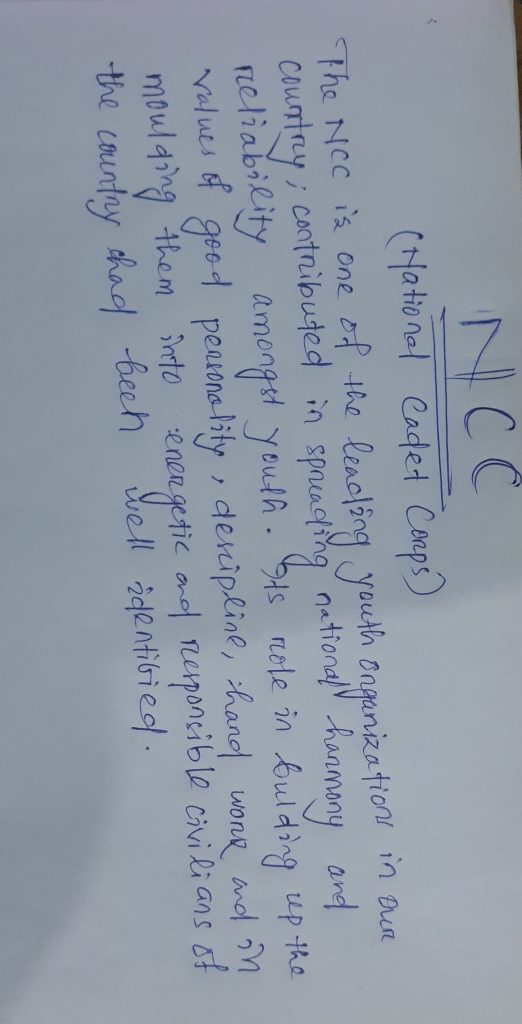 NCC
(National Cadet Corps)
The NCC is one of the leading youth organizations in our
country; contributed in spreading national harmony and
reliability amongst youth. Its role in bulding up the
values of good personality, descipline, hard work and in
moulding them into energetic and responsible civilians of
the country had been well identified.